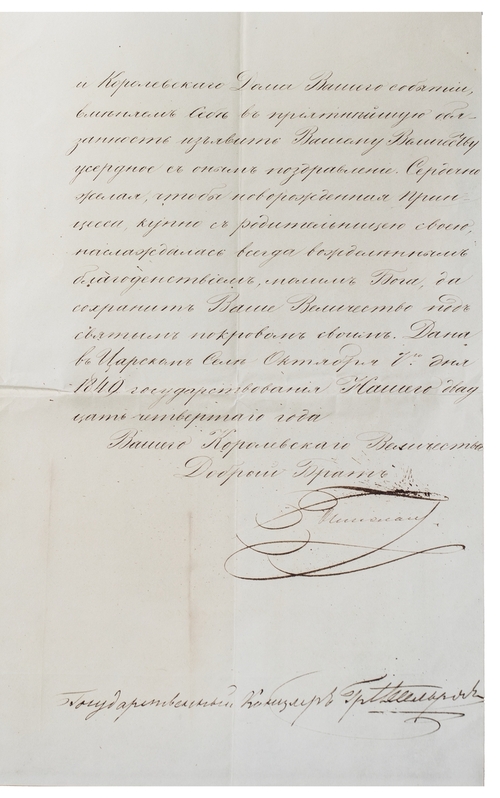 и Королевскаго Дома Вашего событіи,
вмѣняемъ Себѣ въ пріятнѣйшую обя-
занность изъявить Вашему Величеству
усердное съ онымъ поздравленіе. Сердечно
желая, чтобы новорожденная Прин-
цесса, купно съ родительницею своею,
наслаждалась всегда вожделѣннымъ
благоденствіемъ, молимъ Бога, да
сохранитъ Ваше Величество подъ
святымъ покровомъ своимъ. Дана
въ Царскомъ Селѣ Октября дня
1849 государствованія Нашего двад
цать четвертаго года
Вашего Королевскаго Величества
Добрый Братъ
Николай
Государственный Канцлеръ Гр. Нессельроде